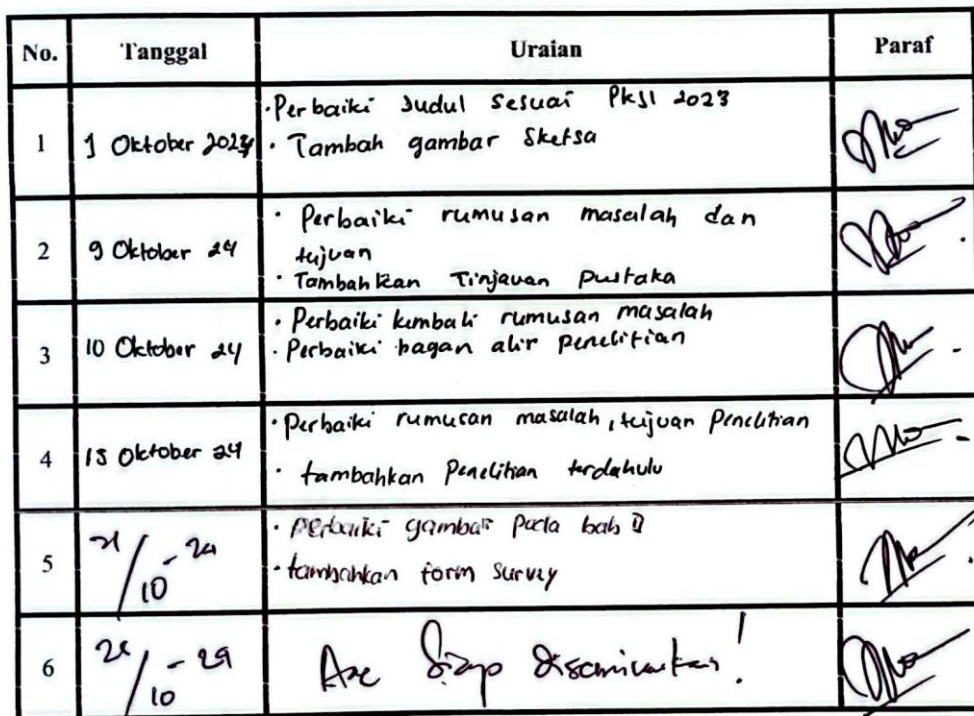 No. Tanggal Uraian Paraf
1 1 Oktober 2024
· Perbaiki Judul Sesuai PKJI 2023
· Tambah gambar Sketsa
2 9 Oktober 24
· Perbaiki rumusan masalah dan
tujuan
· Tambahkan Tinjauan pustaka
3 10 Oktober 24
· Perbaiki kembali rumusan masalah
· Perbaiki bagan alir penelitian
4 15 Oktober 24
· Perbaiki rumusan masalah, tujuan Penelitian
· tambahkan Penelitian terdahulu
5 21/10-24
· Perbaiki gambar pada bab
· tambahkan form survey
6 /10-24
Acc Siap diseminarkan!